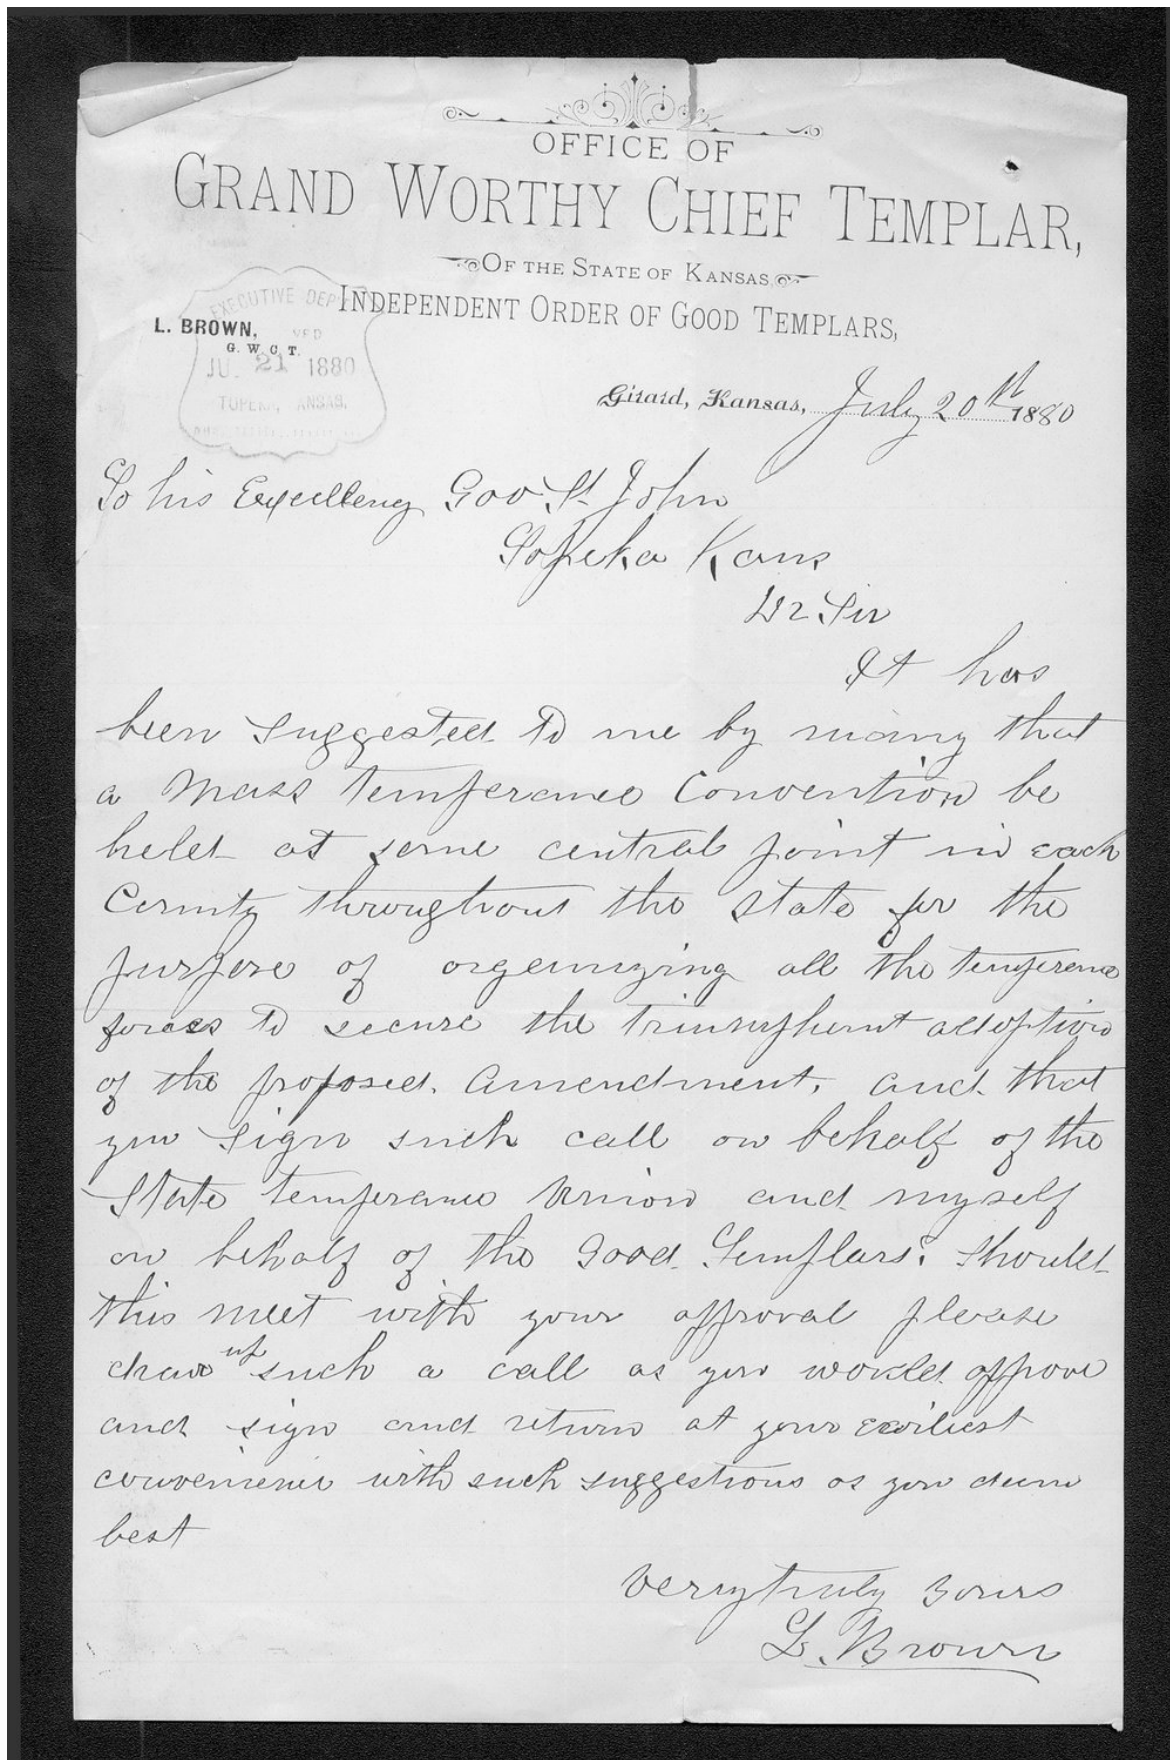 OFFICE OF
GRAND WORTHY CHIEF TEMPLAR,
OF THE STATE OF KANSAS,
INDEPENDENT ORDER OF GOOD TEMPLARS,
EXECUTIVE DEP
L. BROWN,
G. W. C. T.
JU. 21 1880
TOPEKA, KANSAS.
Girard, Kansas, July 20th 1880
To his Excellency Gov St John
Topeka Kans
Dr Sir
It has
been suggested to me by many that
a Mass temperance Convention be
held at some central point in each
County throughout the state for the
purpose of organizing all the temperance
forces to secure the triumphant adoption
of the proposed Amendment, and that
you sign such call on behalf of the
State temperance Union and myself
on behalf of the Good Templars. Should
this meet with your approval please
draw up such a call as you would approve
and sign and return at your earliest
convenience with such suggestions as you deem
best
Very truly Yours
L. Brown